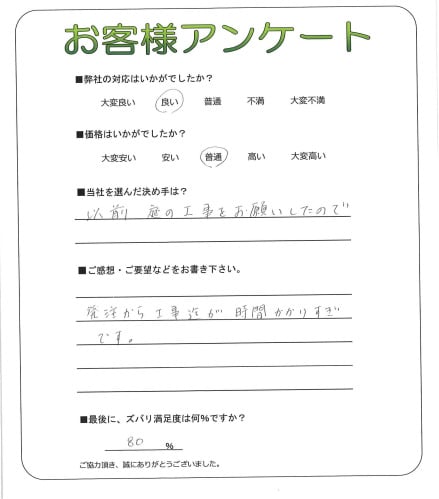 お客様アンケート
■弊社の対応はいかがでしたか？
大変良い 良い 普通 不満 大変不満
■価格はいかがでしたか？
大変安い 安い 普通 高い 大変高い
■当社を選んだ決め手は？
以前 庭の工事をお願いしたので
■ご感想・ご要望などをお書き下さい。
発注から工事迄が時間かかりすぎ
です。
■最後に、ズバリ満足度は何％ですか？
80 ％
ご協力頂き、誠にありがとうございました。